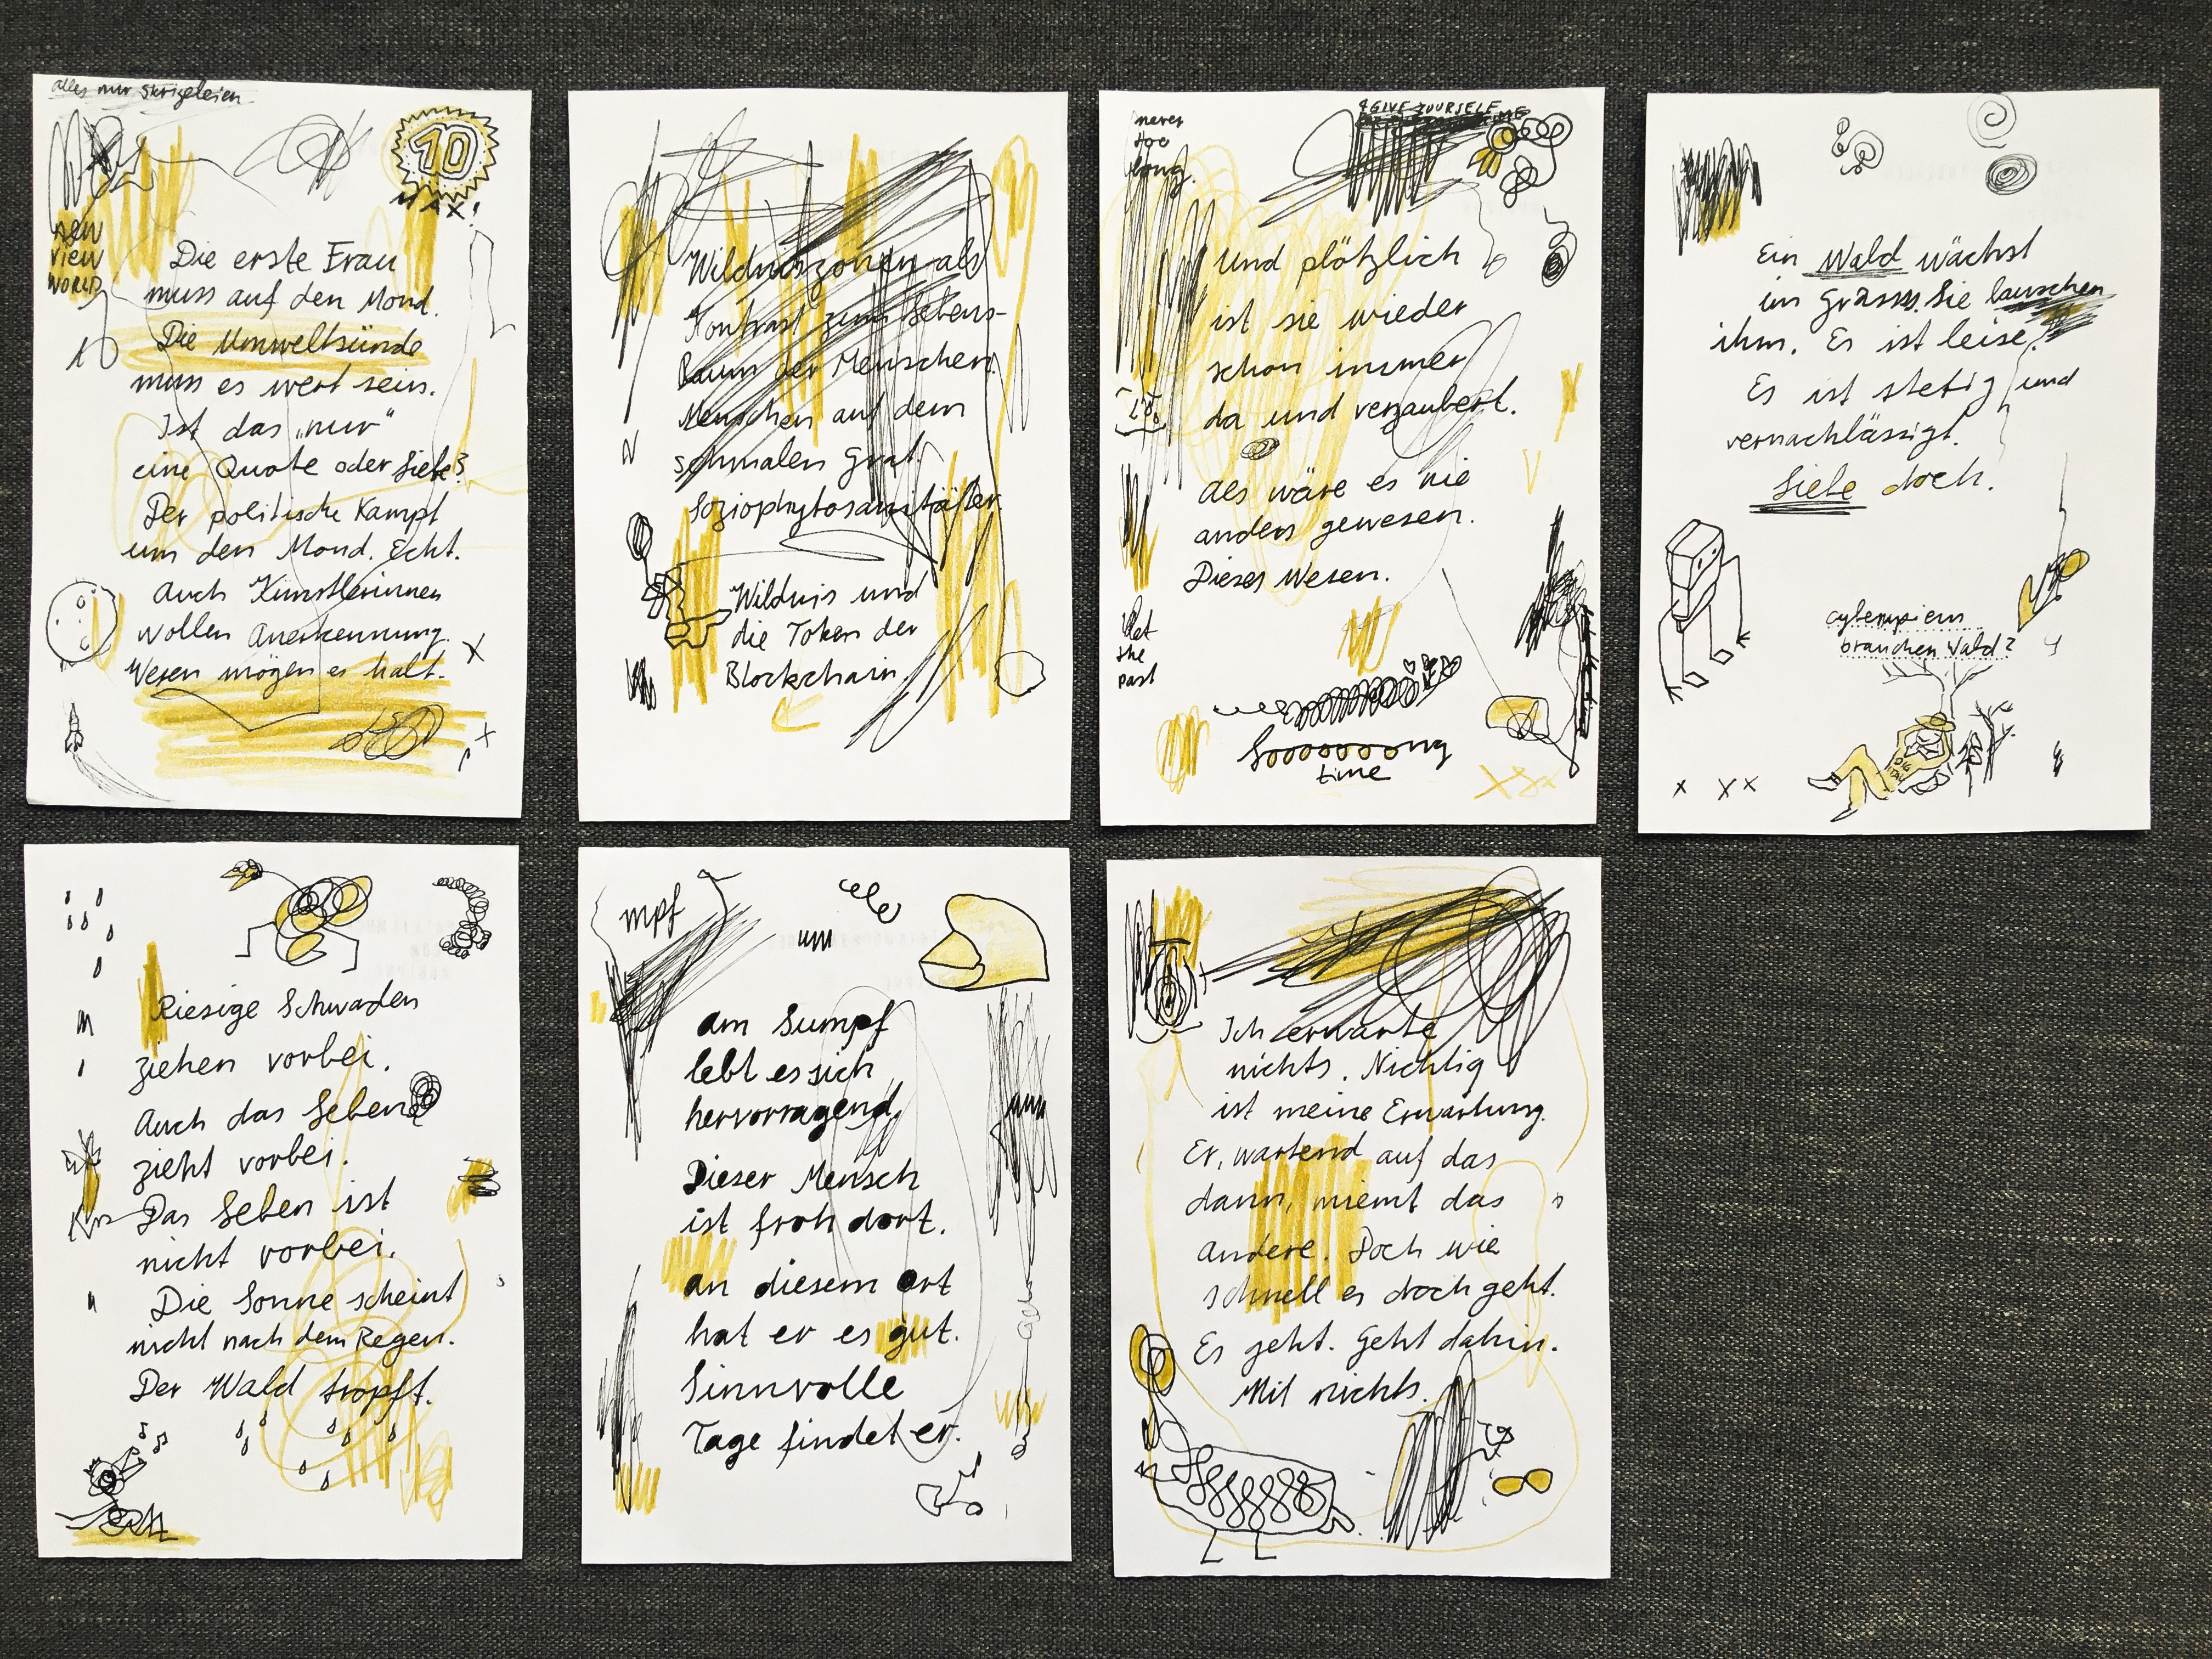 alles nur Skrizeleien
10
MAX!
NEW
VIEW
WORLD
Die erste Frau
muss auf den Mond.
Die Umweltsünde
muss es wert sein.
Ist das „nur“
eine Quote oder Liebe?
Der politische Kampf
um den Mond. Echt.
Auch Künstlerinnen
wollen Anerkennung.
Wesen mögen es halt.
Wildniszonen als
Kontrast zum Lebens-
Raum der Menschen.
Menschen auf dem
schmalen Grat.
Soziophytosanitäter.
Wildnis und
die Token der
Blockchain.
never
toe
long.
4GIVE YOURSELF
Und plötzlich
ist sie wieder
schon immer
da und verzaubert.
Als wäre es nie
anders gewesen.
Dieses Wesen.
let
the
past
Looooooong
time
Ein Wald wächst
im Grasss. Sie lauschen
ihm. Es ist leise.
Es ist stetig und
vernachlässigt.
Liebe doch.
brauchen Wald?
Riesige Schwaden
ziehen vorbei.
Auch das Leben
zieht vorbei.
Das Leben ist
nicht vorbei.
Die Sonne scheint
nicht nach dem Regen.
Der Wald tropft.
mpf
Am Sumpf
lebt es sich
hervorragend,
Dieser Mensch
ist froh dort.
An diesem Ort
hat er es gut.
Sinnvolle
Tage findet er.
Ich erwarte
nichts. Nichtig
ist meine Erwartung.
Er, wartend auf das
dann, mimt das
andere. Doch wie
schnell es doch geht.
Es geht. Geht dahin.
Mit nichts.